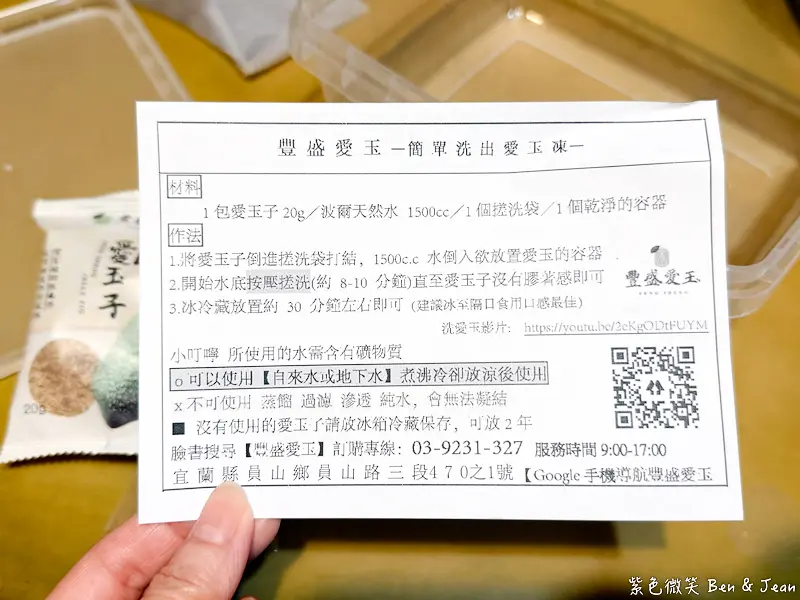 豐盛愛玉—簡單洗出愛玉凍—
材料
1包愛玉子20g／波爾天然水 1500cc／1個搓洗袋／1個乾淨的容器
作法
1.將愛玉子倒進搓洗袋打結，1500c.c 水倒入欲放置愛玉的容器
2.開始水底按壓搓洗(約 8-10 分鐘)直至愛玉子沒有膠著感即可
3.冰冷藏放置約 30 分鐘左右即可 (建議冰至隔日食用口感最佳)
豐盛愛玉
洗愛玉影片： https://youtu.be/2eKgODtFUYM
小叮嚀 所使用的水需含有礦物質
o 可以使用【自來水或地下水】煮沸冷卻放涼後使用
x 不可使用 蒸餾 過濾 滲透 純水，會無法凝結
■ 沒有使用的愛玉子請放冰箱冷藏保存，可放 2 年
臉書搜尋【豐盛愛玉】訂購專線：03-9231-327 服務時間 9:00-17:00
宜蘭縣員山鄉員山路三段470之1號【Google 手機導航豐盛愛玉
愛玉子
20g
紫色微笑 Ben & Jean